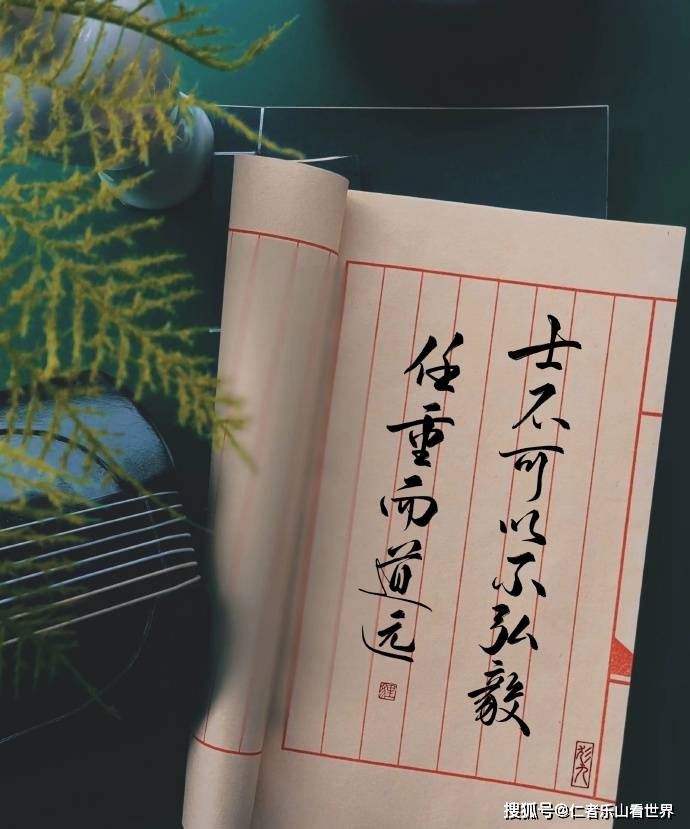 士不可以不弘毅
任重而道远
搜狐号@仁者乐山看世界